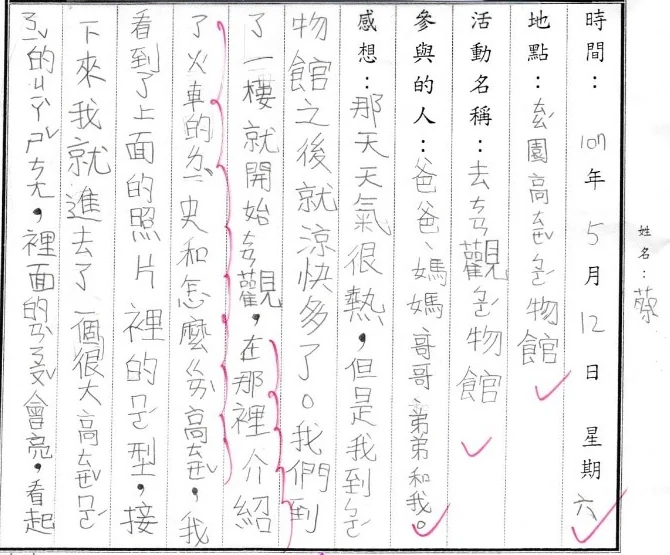 姓名:蔡
時間:107年5月12日 星期六
地點:ㄊㄠˊ園高ㄊㄧㄝˇㄅㄛˊ物館
活動名稱:去ㄘㄢ觀ㄅㄛˊ物館
參與的人:爸爸、媽媽哥哥弟弟和我。
感想:那天天氣很熱,但是我到ㄅㄛˊ
物館之後就涼快多了。我們到
了一樓就開始ㄘㄢ觀,在那裡介紹
了火車的ㄌㄧˋ史和怎麼高ㄊㄧㄝˇ,我
看到了上面的照片裡的ㄇㄛˊ型,接
下來我就進去了一個很大高ㄊㄧㄝˇㄇㄛˊ
的,裡面的會亮,看起